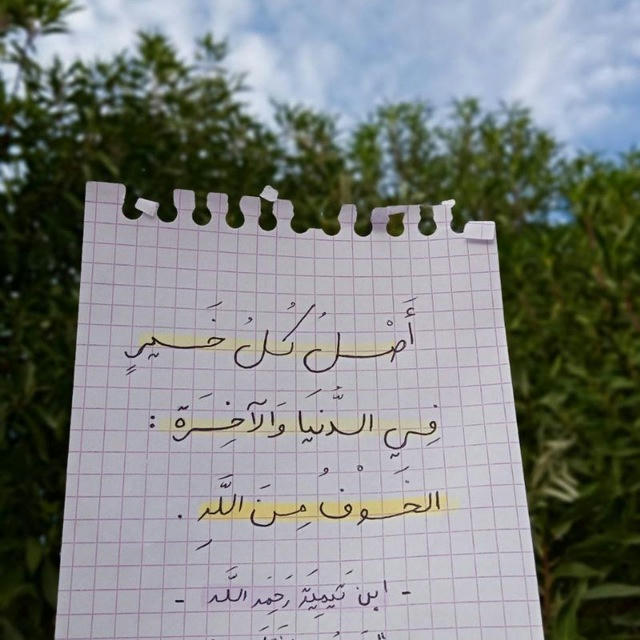 أَصْلُ كُلُ خَيرٍ
فِي الدُّنيَا وَالآخِرَة :
الخَوْفُ مِنَ اللَّهِ .
- ابن تَيمِيَّة رَحِمَه اللَّه -